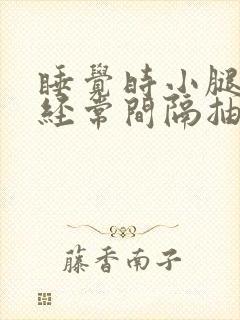 睡覺时小腿
经常間隔抽
藤香南子